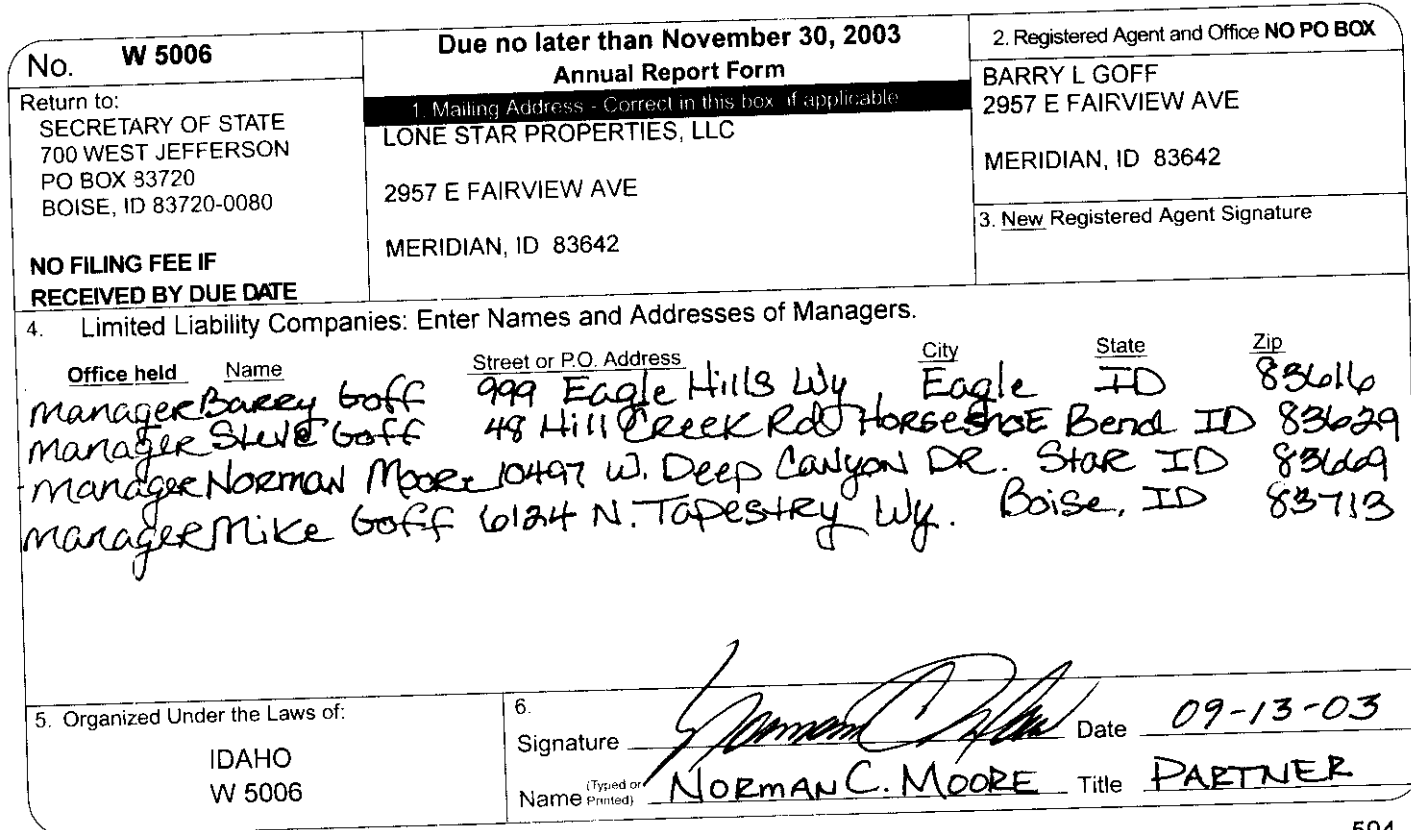 No. W 5006
Return to:
SECRETARY OF STATE
700 WEST JEFFERSON
PO BOX 83720
BOISE, ID 83720-0080
NO FILING FEE IF
RECEIVED BY DUE DATE
Due no later than November 30, 2003
Annual Report Form
1. Mailing Address - Correct in this box if applicable
LONE STAR PROPERTIES, LLC
2957 E FAIRVIEW AVE
MERIDIAN, ID 83642
2. Registered Agent and Office NO PO BOX
BARRY L GOFF
2957 E FAIRVIEW AVE
MERIDIAN, ID 83642
3. New Registered Agent Signature
4. Limited Liability Companies: Enter Names and Addresses of Managers.
Office held Name Street or P.O. Address City State Zip
manager Barry Goff 999 Eagle Hills Wy, Eagle ID 83616
manager Steve Goff 48 Hill Creek Rd Horseshoe Bend ID 83629
manager Norman Moore 10497 W. Deep Canyon DR. Star ID 83669
manager Mike Goff 6124 N. Tapestry Wy. Boise, ID 83713
5. Organized Under the Laws of:
IDAHO
W 5006
6.
Signature Date 09-13-03
Name (Typed or Printed) NORMAN C. MOORE Title PARTNER